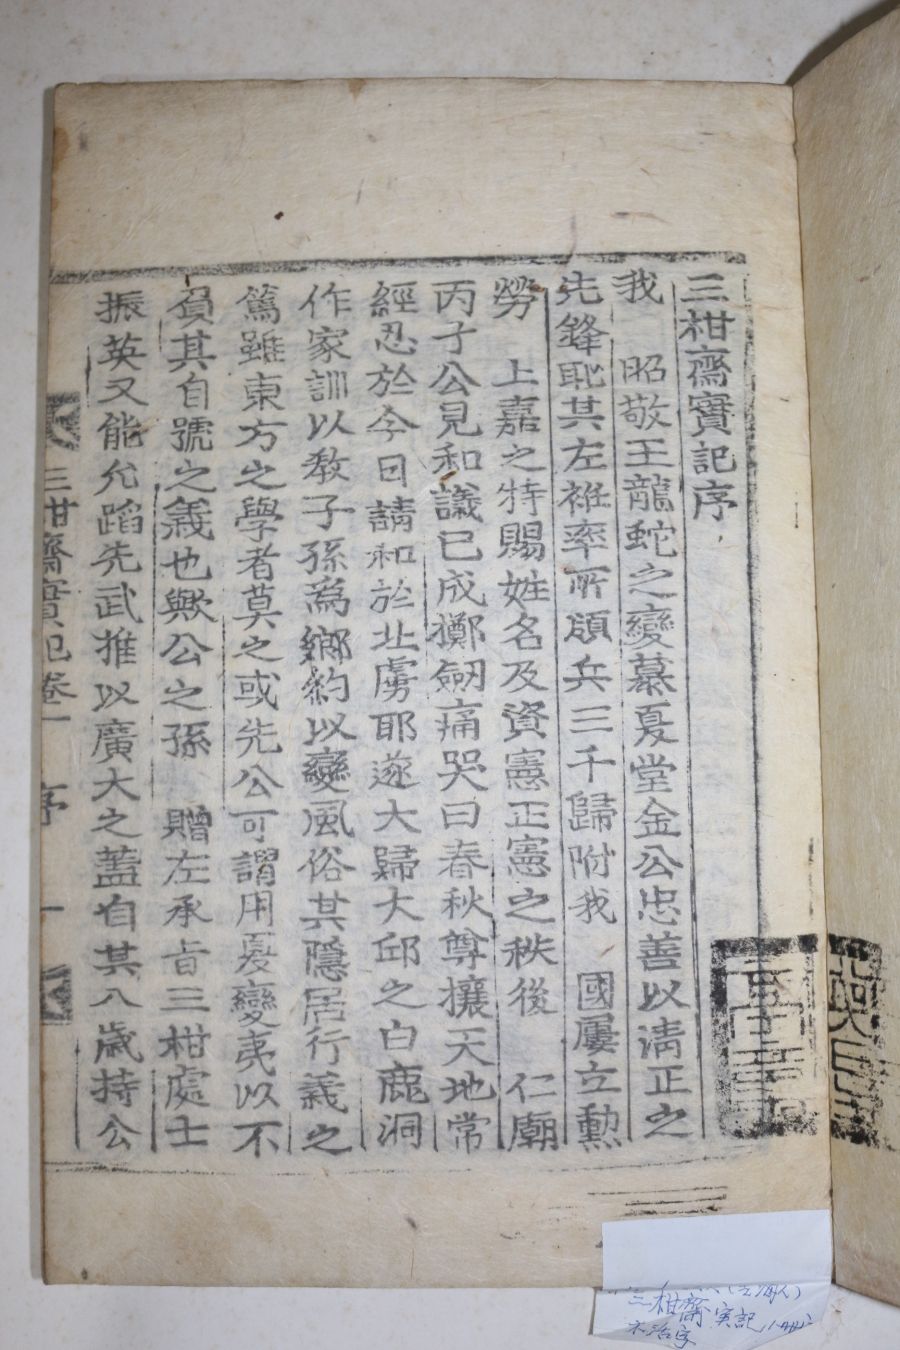 三柑齋實記序
我 昭敬王龍蛇之變慕夏堂金公忠善以淸正之
先鋒恥其左袵率所領兵三千歸附我 國屢立勳
勞 上嘉之特賜姓名及資憲正憲之秩後 仁廟
丙子公見和議已成擲劒痛哭曰春秋尊攘天地常
經忍於今日請和於北虜耶遂大歸大邱之白鹿洞
作家訓以教子孫爲鄉約以變風俗其隱居行義之
篤雖東方之學者莫之或先公可謂用夏變夷以不
負其自號之義也歟公之孫 贈左承旨三柑處士
振英又能允蹈先武推以廣大之蓋自其八歲持公
三柑齋實記卷一 序 一
三柑齋実記
木活字